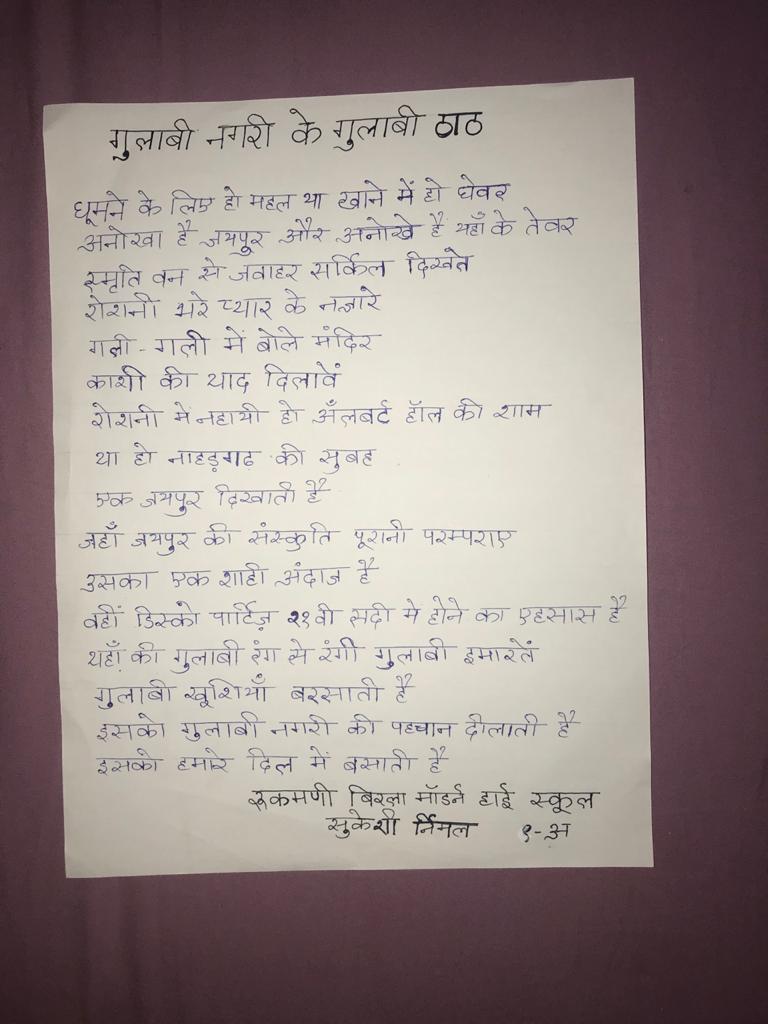 गुलाबी नगरी के गुलाबी ठाठ
घूमने के लिए हो महल या खाने में हो घेवर
अनोखा है जयपुर और अनोखे है यहाँ के तेवर
स्मृति वन से जवाहर सर्किल दिखते
रोशनी भरे प्यार के नज़ारे
गली - गली में बोले मंदिर
काशी की याद दिलावें
रोशनी मे नहायी हो अँलबर्ट हॉल की शाम
या हो नाहड़गढ़ की सुबह
एक जयपुर दिखाती है
जहाँ जयपुर की संस्कृति पूरानी परम्पराए
उसका एक शाही अंदाज है
वहीं डिस्को पार्टिज़ २१वी सदी मे होने का एहसास है
यहाँ की गुलाबी रंग से रंगी गुलाबी इमारतें
गुलाबी खूशियाँ बरसाती है
इसको गुलाबी नगरी की पहचान दीलाती है
इसको हमारे दिल में बसाती है
रूकमणी बिरला मॉडर्न हाई स्कूल
सुकेशी र्निमल ९-अ